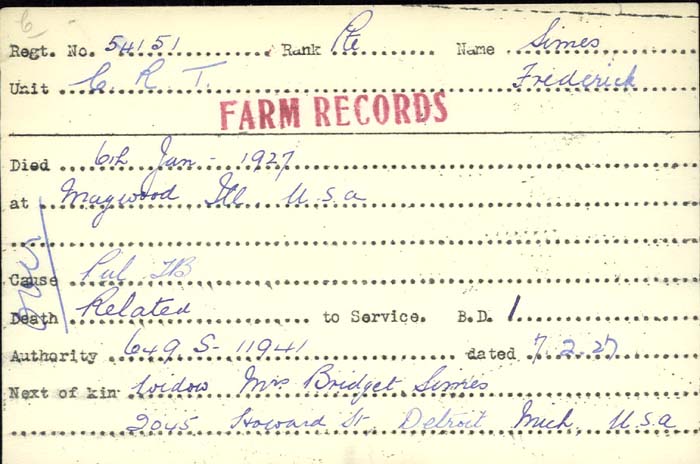 Regt. No. 54151 Rank Pte Name Simes
Unit C. R. T. Frederick
FARM RECORDS
Died 6th Jan - 1927
at Maywood Ill. U.S.a
Cause Pul TB
Death Related to Service. B.D. 1
Authority 649 S- 11941 dated 7.2.27
Next of kin Widow Mrs Bridget Simes
2045 Howard St. Detroit Mich. U.S.a